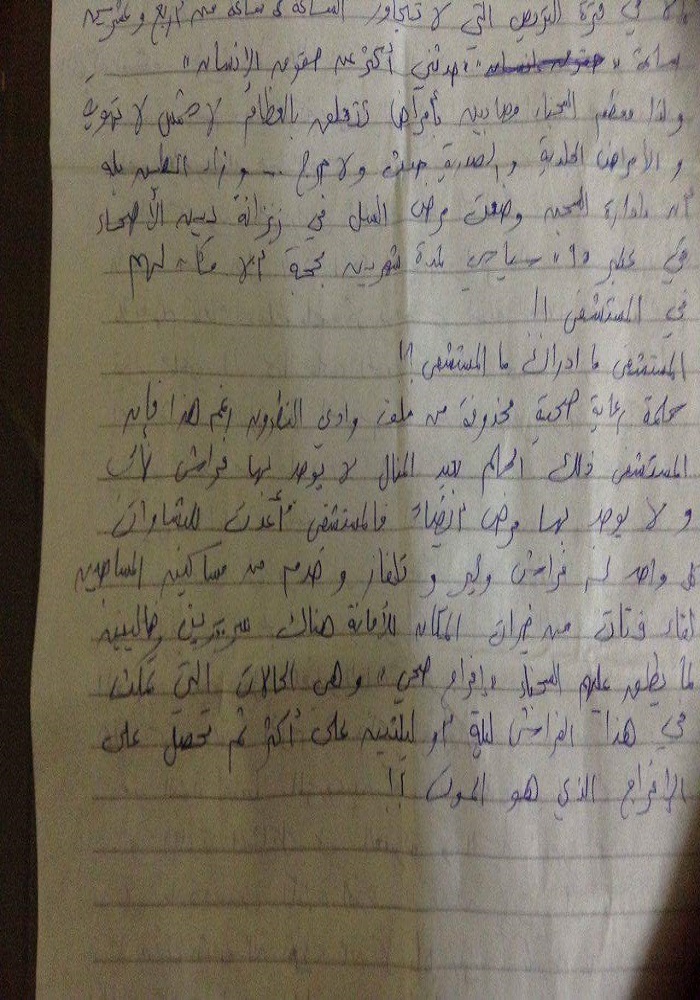 إلا في فترة التريض التي لا تتجاوز الساعة ساعة من أربع وعشرين
ساعة " حدثني أكثر عن حقوق الإنسان "
ولذا معظم السجناء مصابين بأمراض تتعلق بالعظام لا شمس لا تهوية
و الأمراض الجلدية والصدرية حدث ولا حرج ... وزاد الطين بله
أن إدارة السجن وضعت مرضى السل في زنزانة بين الأصحاء
في عنبر "٩" سياسي لمدة شهرين بحجة ألا مكان لهم
في المستشفى !!
المستشفى ما ادراك ما المستشفى ؟!
كلمة رعاية صحية محذوفة من ملف وادي النطرون رغم هذا فإن
المستشفى ذلك الحلم بعيد المنال لا يوجد بها فراش لأنه
و لا يوجد بها مرضى أيضاً فالمستشفى أعدت للبشاوات
كل واحد له فراش وثير و تلفاز و خدم من مساكين المساجين
لقاء فتات من خيرات المكان للأمانة هناك سريرين خاليين
لما يطلق عليهم السجناء "إفراج صحي" وهي الحالات التي تمكث
في هذا الفراش ليلة أو ليلتين على أكثر ثم تحصل على
الإفراج الذي هو الموت !!